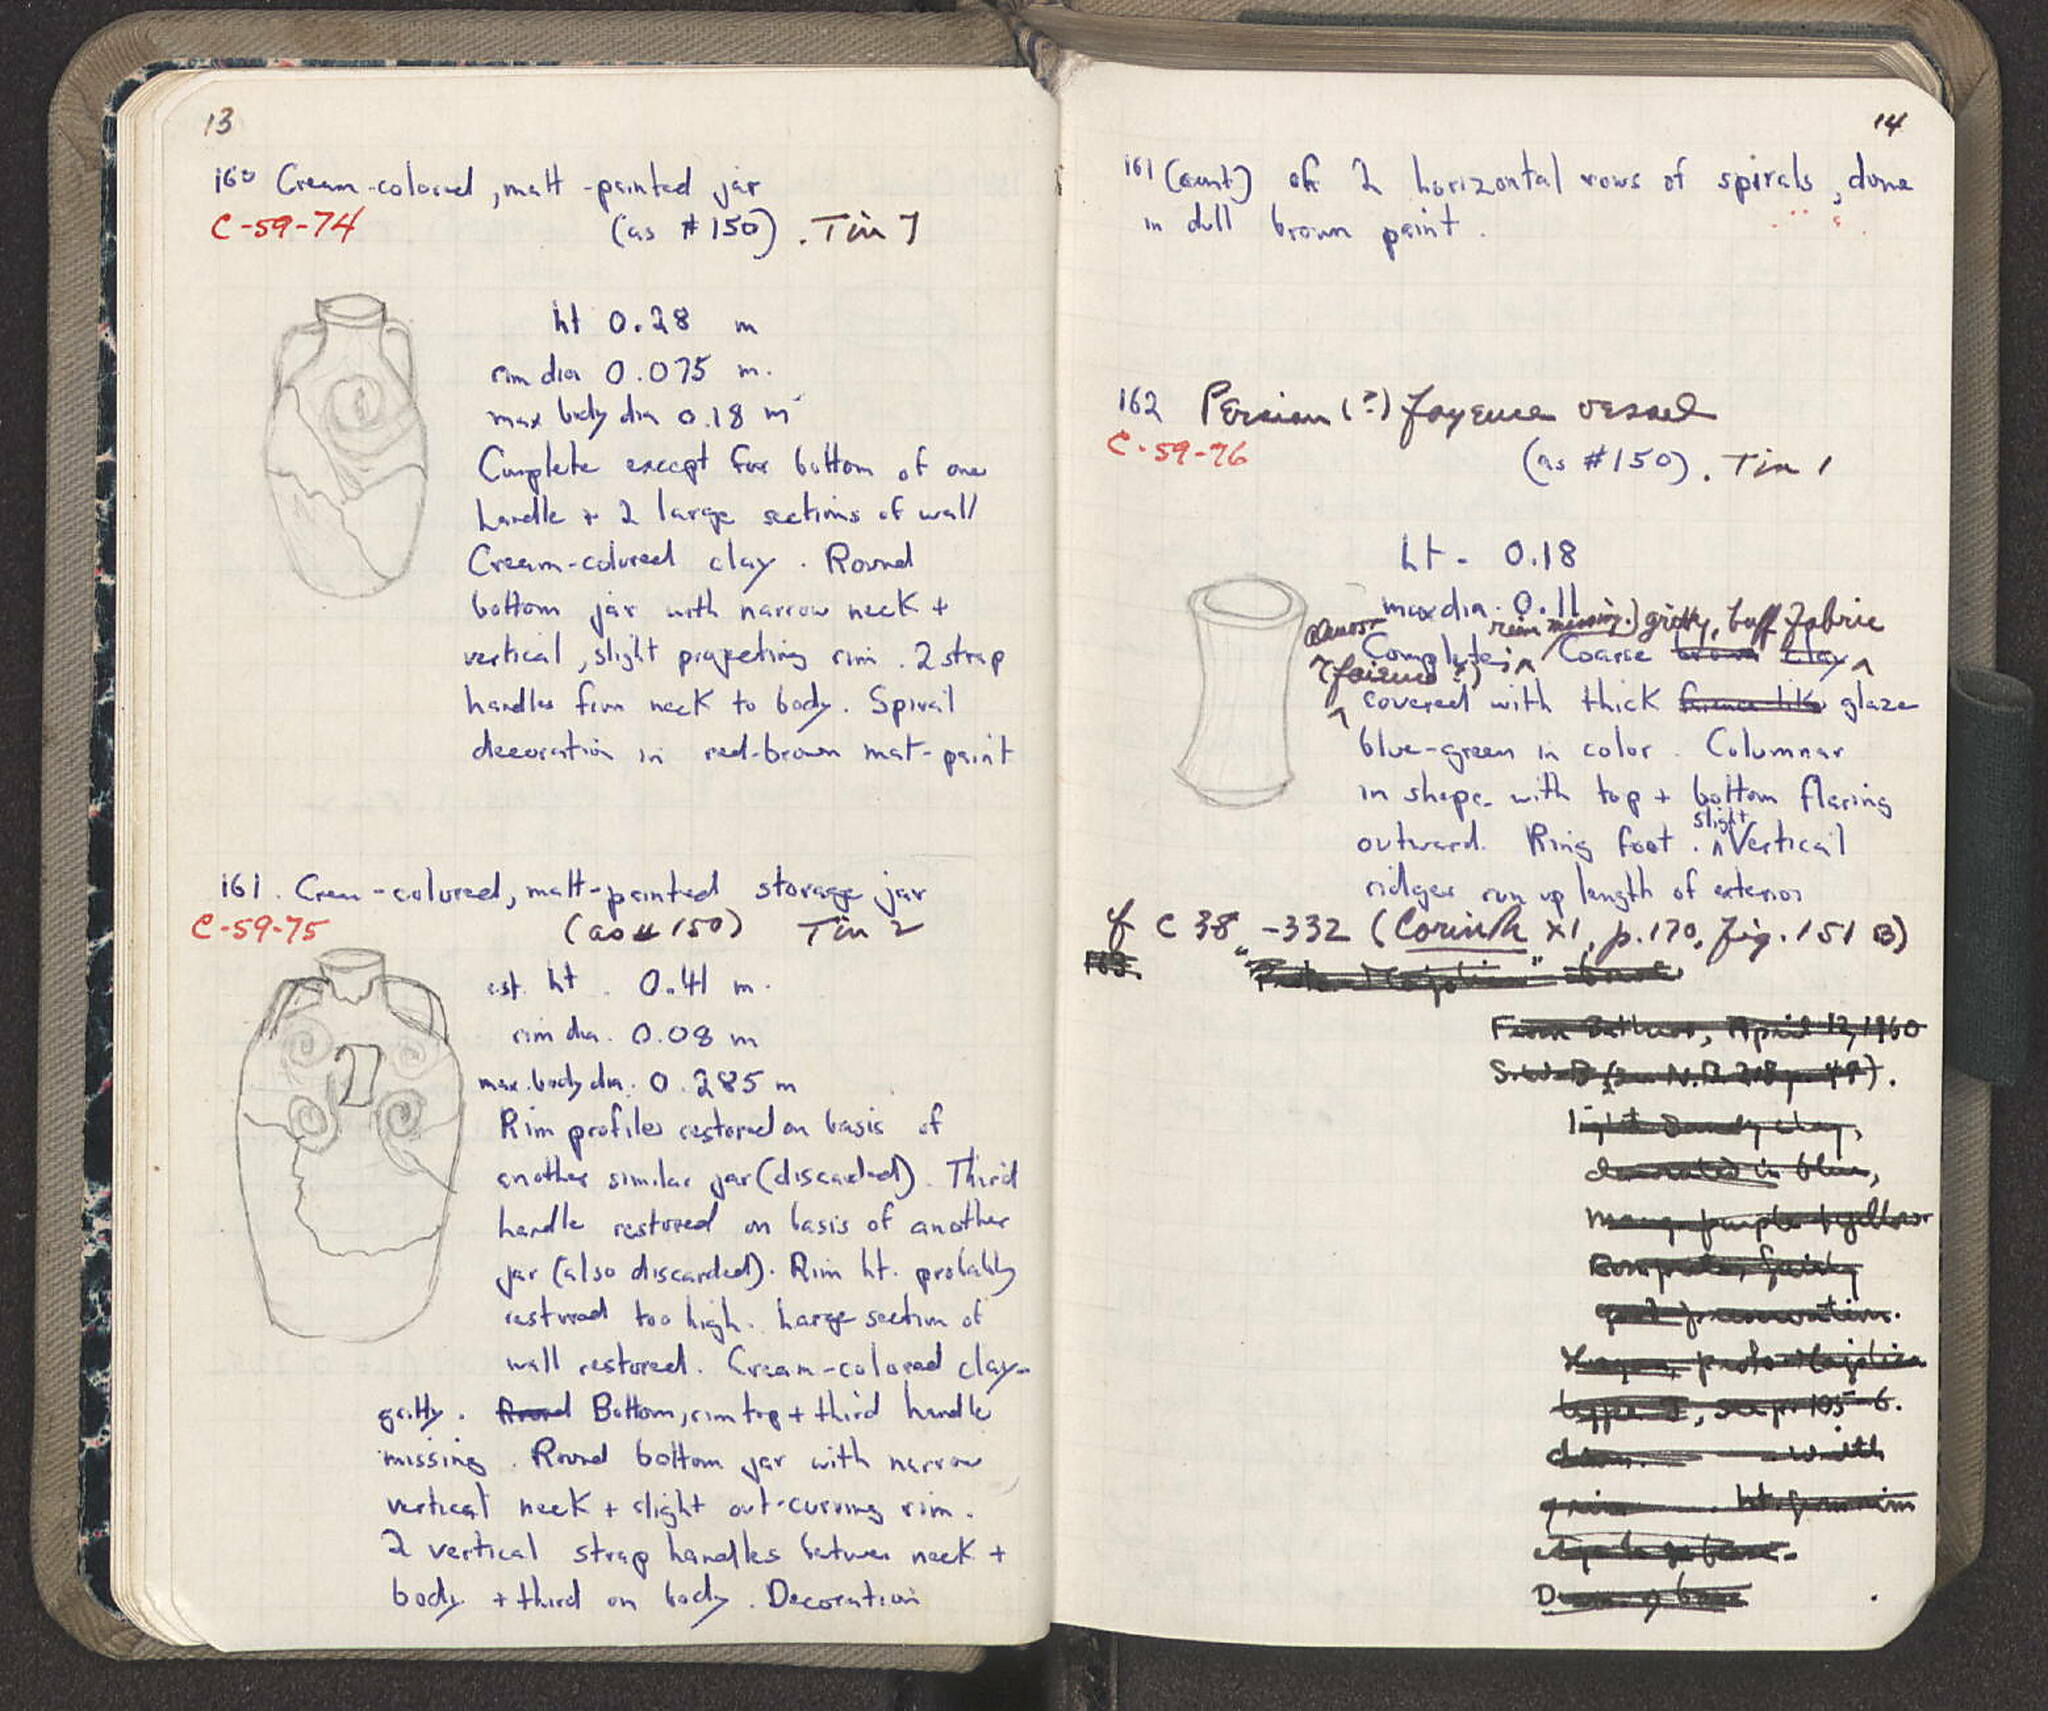 13
160 Cream-colored, matt-painted jar
C-59-74
(as #150). Tin 7
ht 0.28 m
rim dia 0.075 m.
max body dia 0.18 m
Complete except for bottom of one
handle + 2 large sections of wall
Cream-colored clay. Round
bottom jar with narrow neck +
vertical, slight projecting rim. 2 strap
handles from neck to body. Spiral
decoration in red-brown mat-paint
161. Cream-colored, matt-painted storage jar
C-59-75
(as # 150) Tin 2
est. ht. 0.41 m.
rim dia. 0.08 m
max. body dia. 0.285 m
Rim profile restored on basis of
another similar jar (discarded). Third
handle restored on basis of another
jar (also discarded). Rim ht. probably
restored too high. Large section of
wall restored. Cream-colored clay-
gritty. Round Bottom, rim top + third handle
missing. Round bottom jar with narrow
vertical neck + slight out-curving rim.
2 vertical strap handles between neck +
body + third on body. Decoration
14
161 (cont) of 2 horizontal rows of spirals, done
in dull brown paint.
162 Persian (?) fayence vessel
C-59-76
(as #150). Tin 1
ht- 0.18
max dia. 0.11
almost rim missing.) gritty, buff fabric
Complete; Coarse brown clay
(faience?)
covered with thick faience like glaze
blue-green in color. Columnar
in shape with top + bottom flaring
outward. Ring foot. slight Vertical
ridges run up length of exterior
cf C 38-332 (Corinth XI, p. 170, fig. 151 B)
163.
"Proto Majolica" bowl
From Bothros, April 12, 1960
(see N.B. 218 p. 49).
light sandy clay,
decorated in blue,
mang. purple + yellow
Complete, fairly
good preservation.
proto-Majolica
type I, see pp. 105-6.
diam. with
ht. from rim
D of base